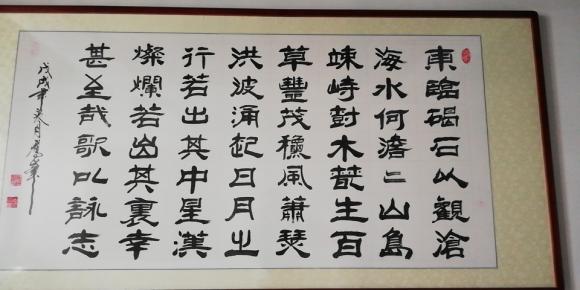 東臨碣石以觀滄
海水何澹〻山島
竦峙樹木藂生百
草豐茂穐風蕭瑟
洪波涌起日月之
行若出其中星漢
燦爛若出其裏幸
甚至哉歌以詠志
戊戌年